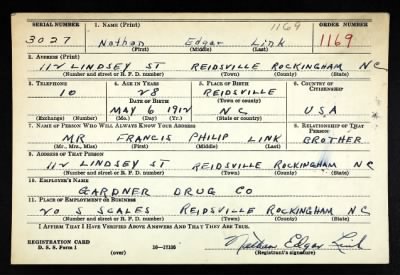 SERIAL NUMBER 1. NAME (Print) 1169 ORDER NUMBER
3027 Nathan Edgar Link 1169
(First) (Middle) (Last)
2. ADDRESS (Print)
112 LINDSEY ST REIDSVILLE ROCKINGHAM NC
(Number and street or R. F. D. number) (Town) (County) (State)
3. TELEPHONE 4. AGE IN YEARS 5. PLACE OF BIRTH 6. COUNTRY OF CITIZENSHIP
10 28 REIDSVILLE
DATE OF BIRTH (Town or county)
MAY 6 1912 NC USA
(Mo.) (Day) (Yr.) (State or country)
7. NAME OF PERSON WHO WILL ALWAYS KNOW YOUR ADDRESS 8. RELATIONSHIP OF THAT PERSON
MR FRANCIS PHILIP LINK BROTHER
(Mr., Mrs., Miss) (First) (Middle) (Last)
9. ADDRESS OF THAT PERSON
112 LINDSEY ST REIDSVILLE ROCKINGHAM NC
(Number and street or R. F. D. number) (Town) (County) (State)
10. EMPLOYER'S NAME
GARDNER DRUG CO
11. PLACE OF EMPLOYMENT OR BUSINESS
20 S SCALES REIDSVILLE ROCKINGHAM NC
(Number and street or R. F. D. number) (Town) (County) (State)
I AFFIRM THAT I HAVE VERIFIED ABOVE ANSWERS AND THAT THEY ARE TRUE.
REGISTRATION CARD Nathan Edgar Link
D. S. S. Form 1 (over) 16—17105 (Registrant's signature)